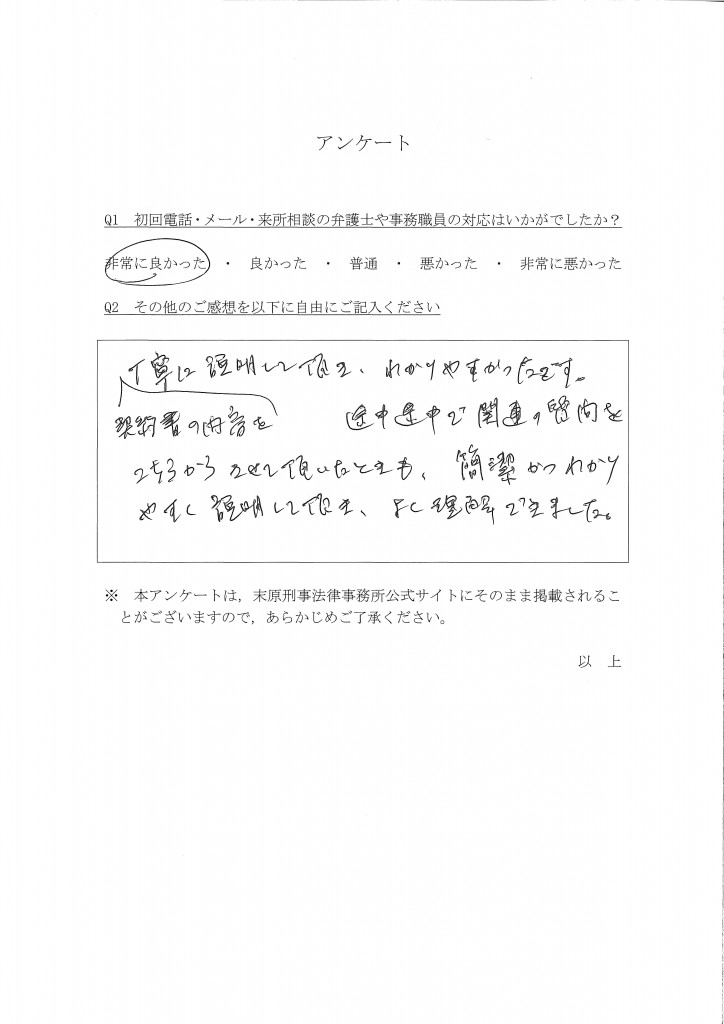 アンケート
Q1 初回電話・メール・来所相談の弁護士や事務職員の対応はいかがでしたか？
非常に良かった ・ 良かった ・ 普通 ・ 悪かった ・ 非常に悪かった
Q2 その他のご感想を以下に自由にご記入ください
丁寧に説明して頂き、わかりやすかったです。
契約書の内容を 途中途中で関連の質問を
こちらからさせて頂いたときも、簡潔かつわかり
やすく説明して頂き、よく理解できました。
※ 本アンケートは，末原刑事法律事務所公式サイトにそのまま掲載されるこ
とがございますので，あらかじめご了承ください。
以 上